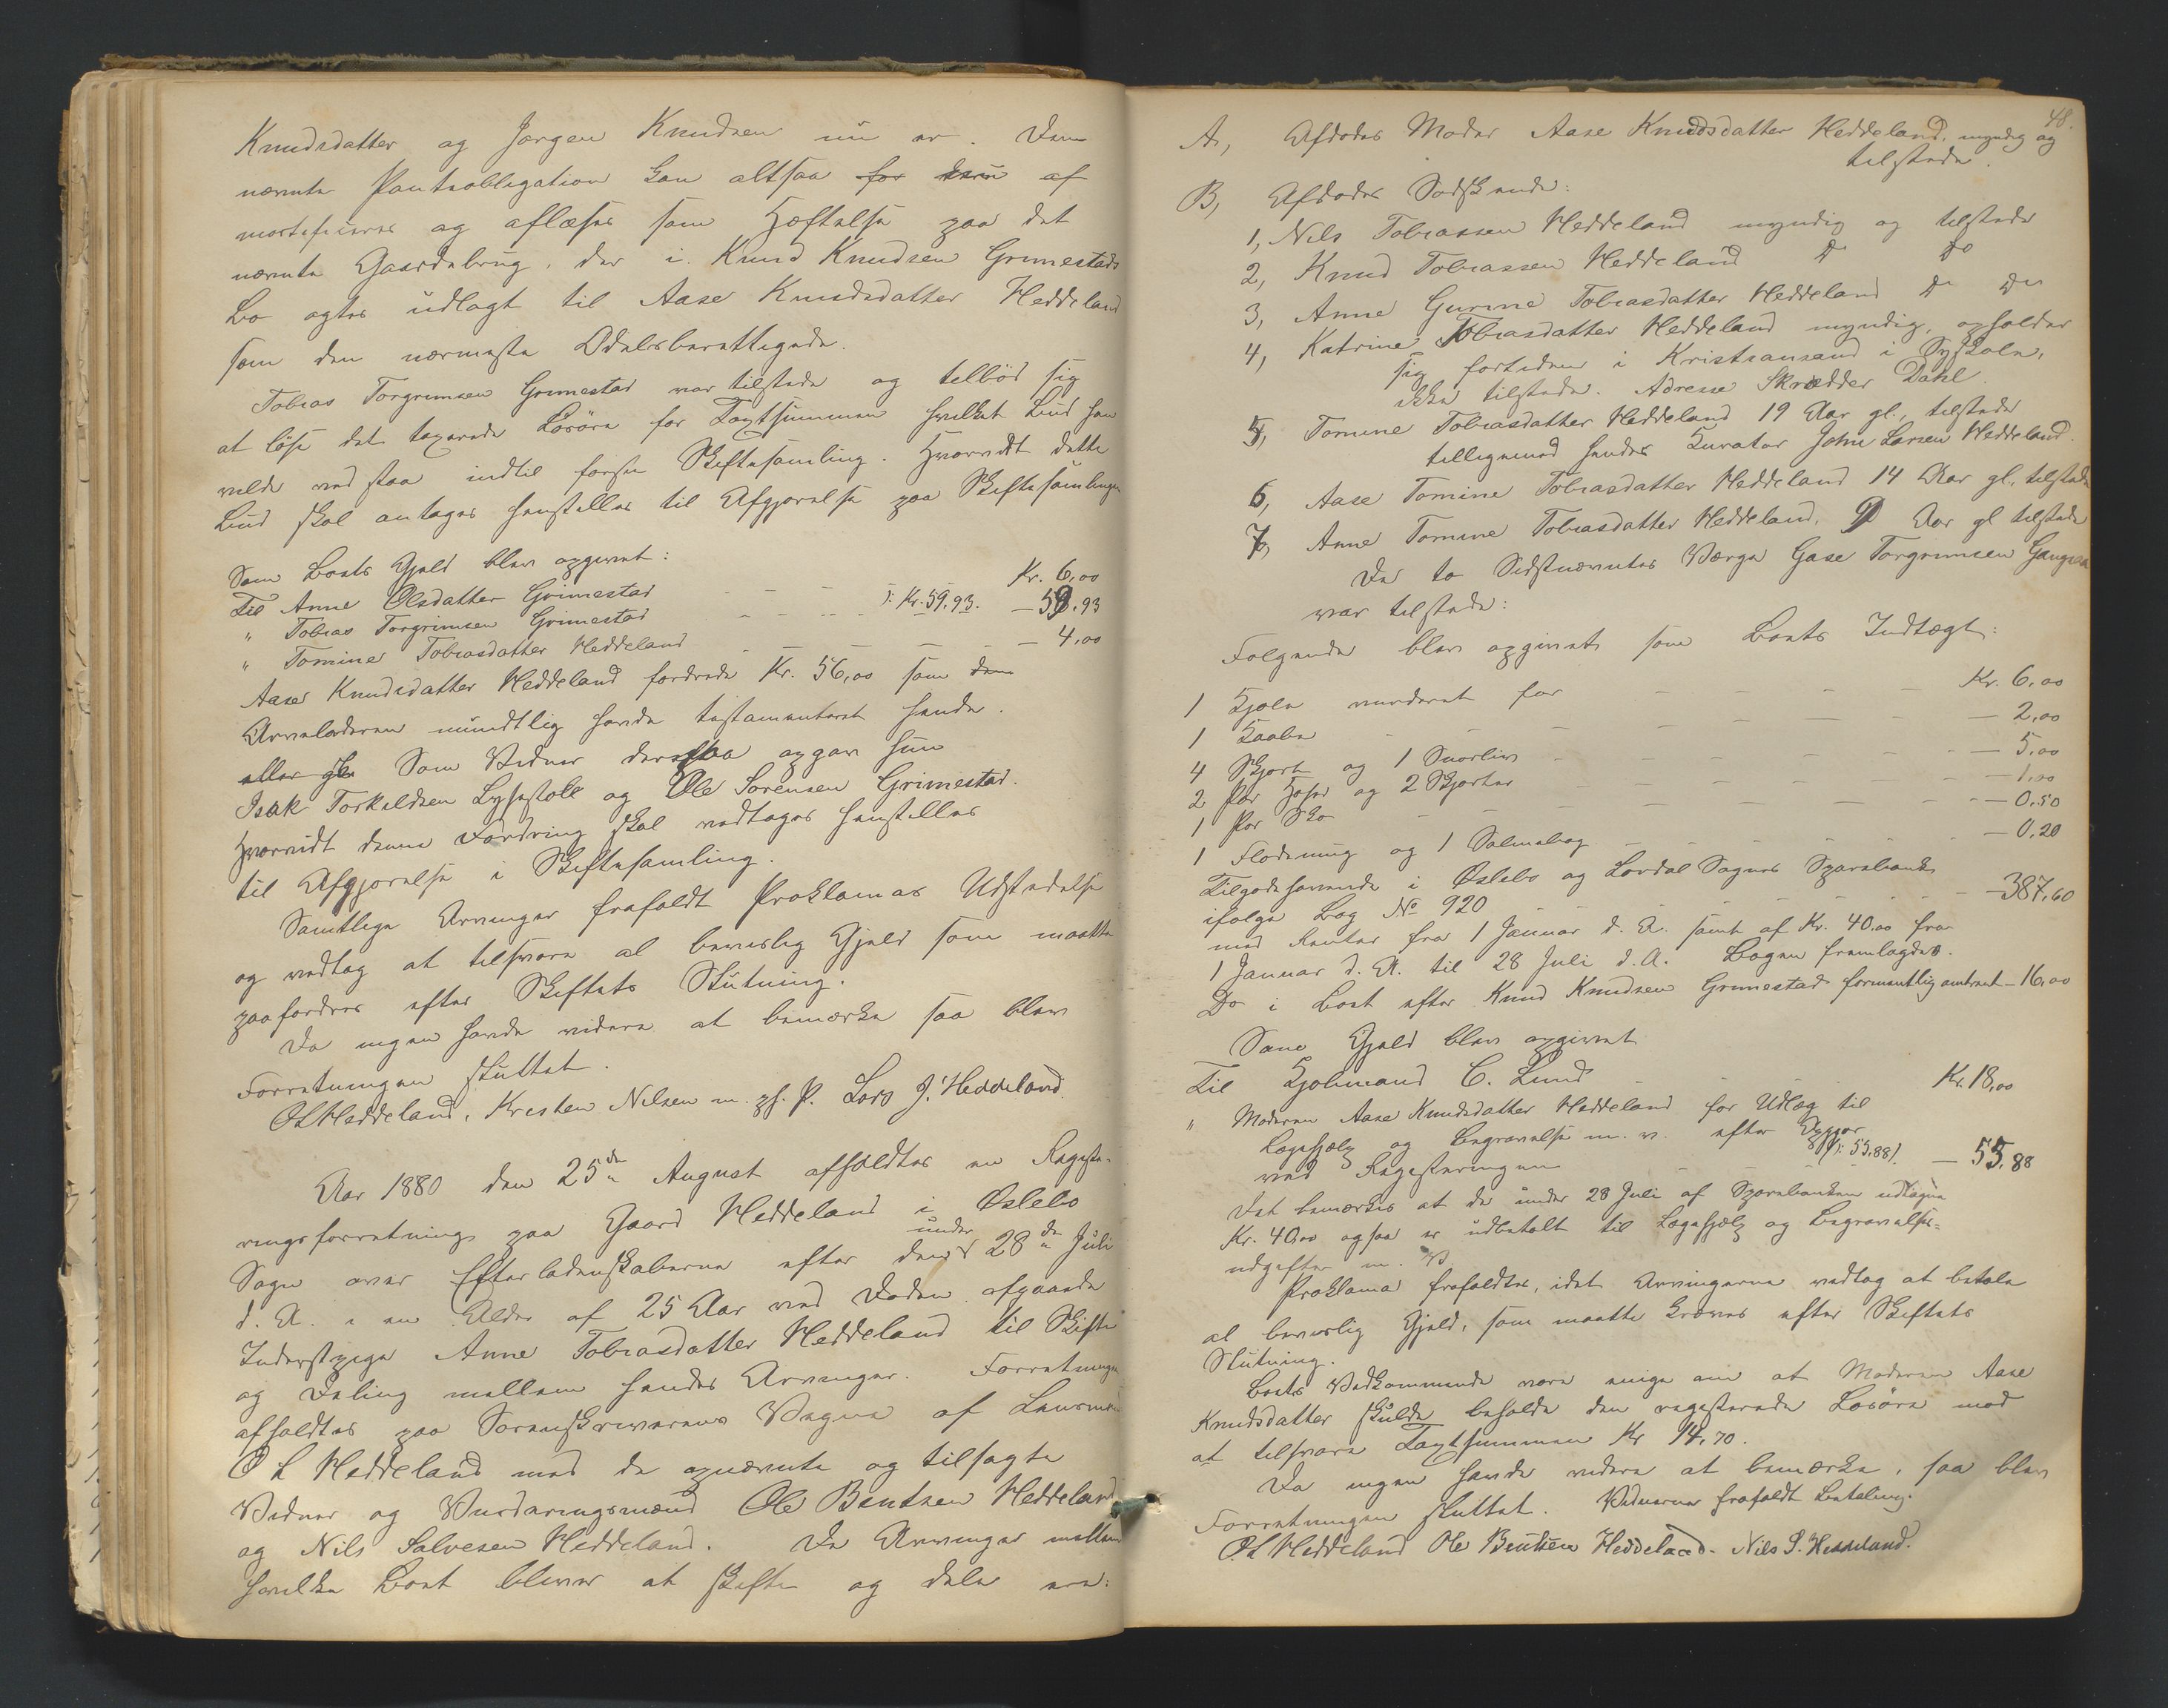 Knudsdatter og Jørgen Knudsen nu er. Den
nævnte Panteobligation kan altsaa for dem af
mortificeres og aflæses som Hæftelse paa det
nævnte Gaardsbrug, der i Knud Knudsen Grimestads
Bo agtes udlagt til Aase Knudsdatter Heddeland
som den nærmeste Odelsberettigede.
Tobias Torgrimsen Grimestad var tilstede og tilbød sig
at løse det taxerede Løsøre for Taxtsummen hvilket Bud han
vilde vedstaa indtil første Skiftesamling. Hvorvidt dette
Bud skal antages henstilles til Afgjørelse paa Skiftesamlingen
Som Boets Gjeld blev opgivet:
Til Anne Olsdatter Grimestad - - Kr. 6,00
" Tobias Torgrimsen Grimestad - - ɔ: Kr. 59.93. — 59.93
" Tomine Tobiasdatter Heddeland - - — 4,00
Aase Knudsdatter Heddeland fordrede Kr. 56,00 som den
Arveladeren mundtlig havde testamenteret hende.
eller gl. Som Vidner derpaa opgav hun
Isak Torkildsen Lyhestøle og Ole Sørensen Grimestad.
Hvorvidt denne Fordring skal vedtages henstilles
til Afgjørelse i Skiftesamling.
Samtlige Arvinger frafaldt Proklamas Udstedelse
og vedtog at tilsvare al bevislig Gjeld som maatte
paafordres efter Skiftets Slutning.
Da ingen havde videre at bemærke saa blev
Forretningen sluttet.
OLHeddeland, Kristen Nilsen m. p. P. Lars J. Heddeland
Aar 1880 den 25de August afholdtes en Registe-
ringsforretning paa Gaard Heddeland i Øslebø
Sogn over Efterladenskaberne efter den under 28de Juli
d. A. i en Alder af 25 Aar ved Døden afgaaede
Inderstpige Anne Tobiasdatter Heddeland til Skifte
og Deling mellem hendes Arvinger. Forretningen
afholdtes paa Sorenskriverens Vegne af Lensmand
O L Heddeland med de opnævnte og tilsagte
Vidner og Vurderingsmænd Ole Bentsen Heddeland
og Nils Salvesen Heddeland. De Arvinger mellem
hvilke Boet bliver at skifte og dele ere:
48.
A, Afdødes Moder Aase Knudsdatter Heddeland, myndig og
tilstede.
B, Afdødes Sødskende:
1, Nils Tobiassen Heddeland myndig og tilstede
2, Knud Tobiassen Heddeland Do Do
3, Anne Gurine Tobiasdatter Heddeland Do Do
4, Katrine Tobiasdatter Heddeland myndig, opholder
sig fortiden i Kristiansand i Syskole,
ikke tilstede. Adresse Skrædder Dahl.
5, Tomine Tobiasdatter Heddeland 19 Aar gl., tilstede
tilligemed hendes Kurator John Larsen Heddeland.
6, Aase Tomine Tobiasdatter Heddeland 14 Aar gl., tilstede
7, Anne Tomine Tobiasdatter Heddeland, 9 Aar gl tilstede
De to Sidstnævntes Værge Gase Torgrimsen
var tilstede:
Følgende blev opgivet som Boets Indtægt:
1 Kjole vurderet for - - - - Kr. 6,00
1 Kaabe - - - - — 2,00
4 Skjørt og 1 Snørliv - - - - — 5,00
2 Par Hoser og 2 Skjorter - - - - — 1,00
1 Par Sko - - - - — 0,50
1 og 1 Salmebog - - - - — 0.20
Tilgodehavende i Øslebø og Løvdal Sognes Sparebank
ifølge Bog No 920 - - - - —387,60
med Renter fra 1 Januar d. A. samt af Kr. 40.00 fra
1 Januar d. A. til 28 Juli d. A. Bogen fremlagdes.
Do i Boet efter Knud Knudsen Grimestad formentlig omtrent — 16,00
Som Gjeld blev opgivet
Til Kjøbmand C. Lund - - Kr. 18,00
" Moderen Aase Knudsdatter Heddeland for Udlæg til
Lægehjælp og Begravelse m. v. efter Opgjør
ved Registreringen (ɔ: 55,88). — 55,88
Det bemærkes at de under 28 Juli af Sparebanken udtagne
Kr. 40.00 ogsaa er udbetalt til Lægehjælp og Begravelses-
udgifter m. V
Proklama frafaldtes, idet Arvingerne vedtog at betale
al bevislig Gjeld, som maatte kræves efter Skiftets
Slutning.
Boets Vedkommende vare enige om at Moderen Aase
Knudsdatter skulde beholde den registerede Løsøre mod
at tilsvare Taxtsummen Kr 14,70.
Da ingen havde videre at bemærke, saa blev
Forretningen sluttet. Vidnerne frafaldt Betaling.
O.L Heddeland Ole Bentsen Heddeland. Nils S. Heddeland.